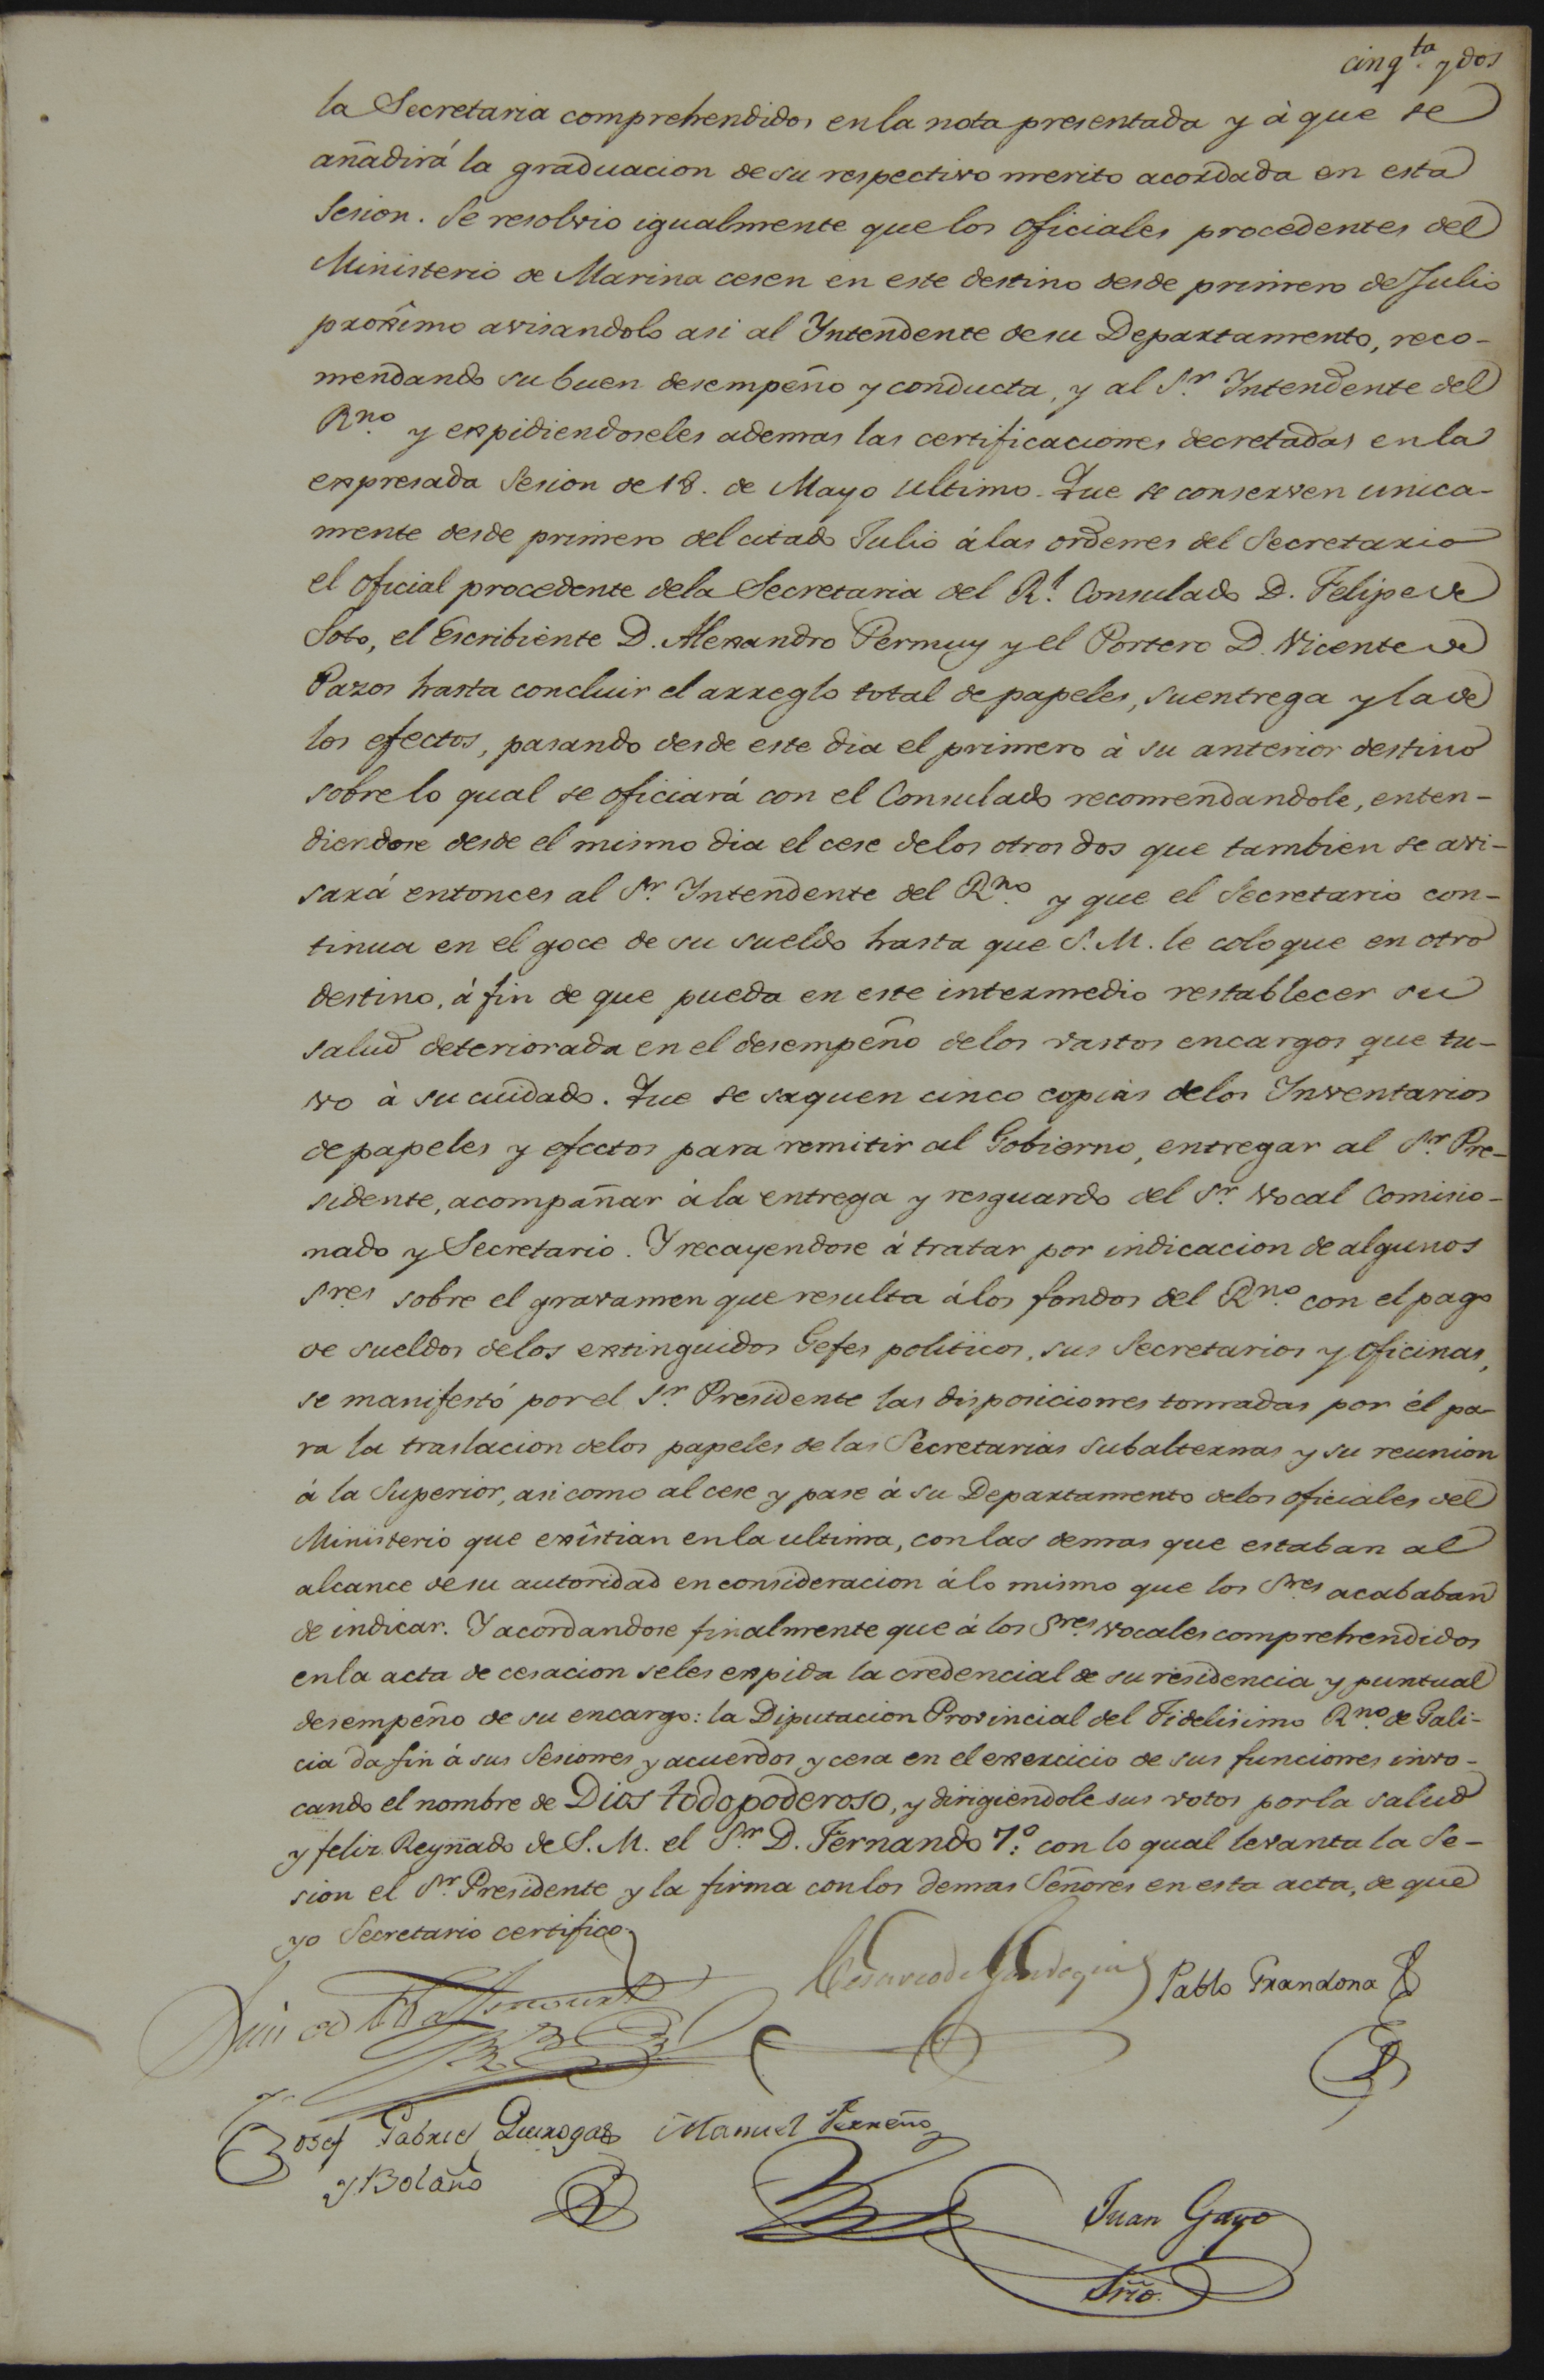 cinq.ta y dos
la Secretaria comprehendidos en la nota presentada y à que se
añadirá la graduacion de su respectivo merito acordada en esta
Sesion. Se resolvio igualmente que los Oficiales procedentes del
Ministerio de Marina cesen en este destino desde primero de Julio
proxîmo avisandolo asi al Yntendente de su Departamento, reco-
mendando su buen desempeño y conducta, y al S.r Yntendente del
R.no y expidiendoseles ademas las certificaciones decretadas en la
expresada Sesion de 18. de Mayo ultimo. Que se conserven unica-
mente desde primero del citado Julio á las ordenes del Secretario
el Oficial procedente de la Secretaria del R.l Consulado D. Felipe de
Soto, el Escribiente D. Alexandro Permuy y el Portero D. Vicente de
Pazos hasta concluir el arreglo total de papeles, su entrega y la de
los efectos, pasando desde este dia el primero à su anterior destino
sobre lo qual se oficiará con el Consulado recomendandole, enten-
diendose desde el mismo dia el cese de los otros dos que tambien se avi-
sará entonces al S.r Yntendente del R.no y que el Secretario con-
tinua en el goce de su sueldo hasta que S. M. le coloque en otro
destino, á fin de que pueda en este intermedio restablecer su
salud deteriorada en el desempeño de los vastos encargos que tu-
vo à su cuidado. Que se saquen cinco copias de los Ynventarios
de papeles y efectos para remitir al Gobierno, entregar al S.r Pre-
sidente, acompañar á la entrega y resguardo del S.r Vocal Comisio-
nado y Secretario. Y recayendose á tratar por indicacion de algunos
S.res sobre el gravamen que resulta á los fondos del R.no con el pago
de sueldos de los extinguidos Gefes politicos, sus Secretarios y Oficinas,
se manifestó por el S.r Presidente las disposiciones tomadas por él pa-
ra la traslacion de los papeles de las Secretarias Subalternas y su reunion
á la Superior, asi como al cese y pase á su Departamento de los oficiales del
Ministerio que exîstian en la ultima, con las demas que estaban al
alcance de su autoridad en consideracion á lo mismo que los S.res acababan
de indicar. Y acordandose finalmente que á los S.res Vocales comprehendidos
en la acta de cesacion se les expida la credencial de su residencia y puntual
desempeño de su encargo: la Diputacion Provincial del Fidelisimo R.no de Gali-
cia da fin á sus Sesiones y acuerdos y cesa en el exercicio de sus funciones invo-
cando el nombre de Dios todopoderoso, y dirigiendole sus votos por la salud
y feliz Reynado de S. M. el S.or D. Fernando 7.º con lo qual levanta la Se-
sion el S.r Presidente y la firma con los demas Señores en esta acta, de que
yo Secretario certifico.
Cesareo de Gardoqui
Pablo Frandona
Josef Gabriel Quiroga Manuel Ferreño
y Bolaño
Juan Gayo
Srio.